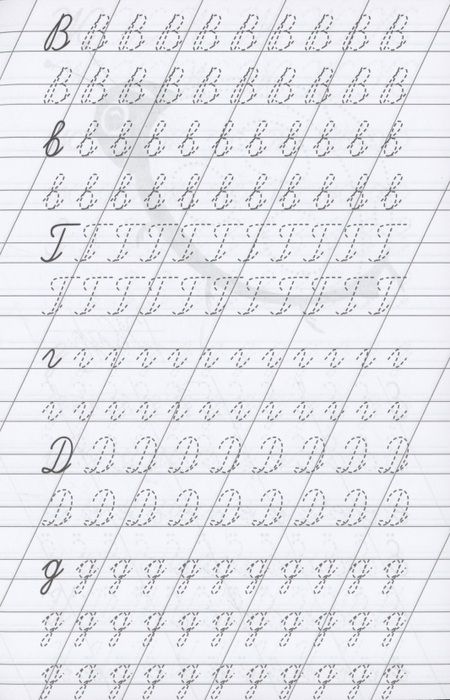 В В В В В В В В В В
В В В В В В В В В В
в в в в в в в в в в в
в в в в в в в в в в в
Г Г Г Г Г Г Г Г Г Г
Г Г Г Г Г Г Г Г Г Г
г г г г г г г г г г г г
г г г г г г г г г г г г
Д Д Д Д Д Д Д Д Д
Д Д Д Д Д Д Д Д Д
д д д д д д д д д д д
д д д д д д д д д д д
д д д д д д д д д д д